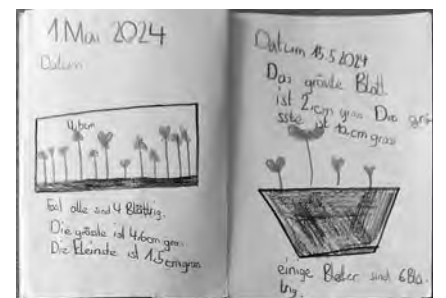 1 Mai 2024
Datum
4,6cm
Fast alle sind 4 Blättrig.
Die gröste ist 4,6cm gros.
Die kleinste ist 1,5cm gros
Datum 15.5 2024
Das gröste Blatt
ist 2,cm gros Die grö
sste ist cm gros
einige Bläter sind 6Blä.
trig.